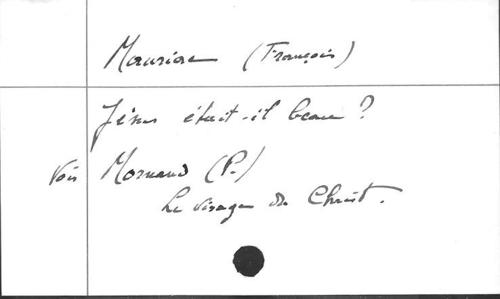 Mauriac (François)
Jésus était-il beau ?
Voir Mornand (P.)
Le visage du Christ.